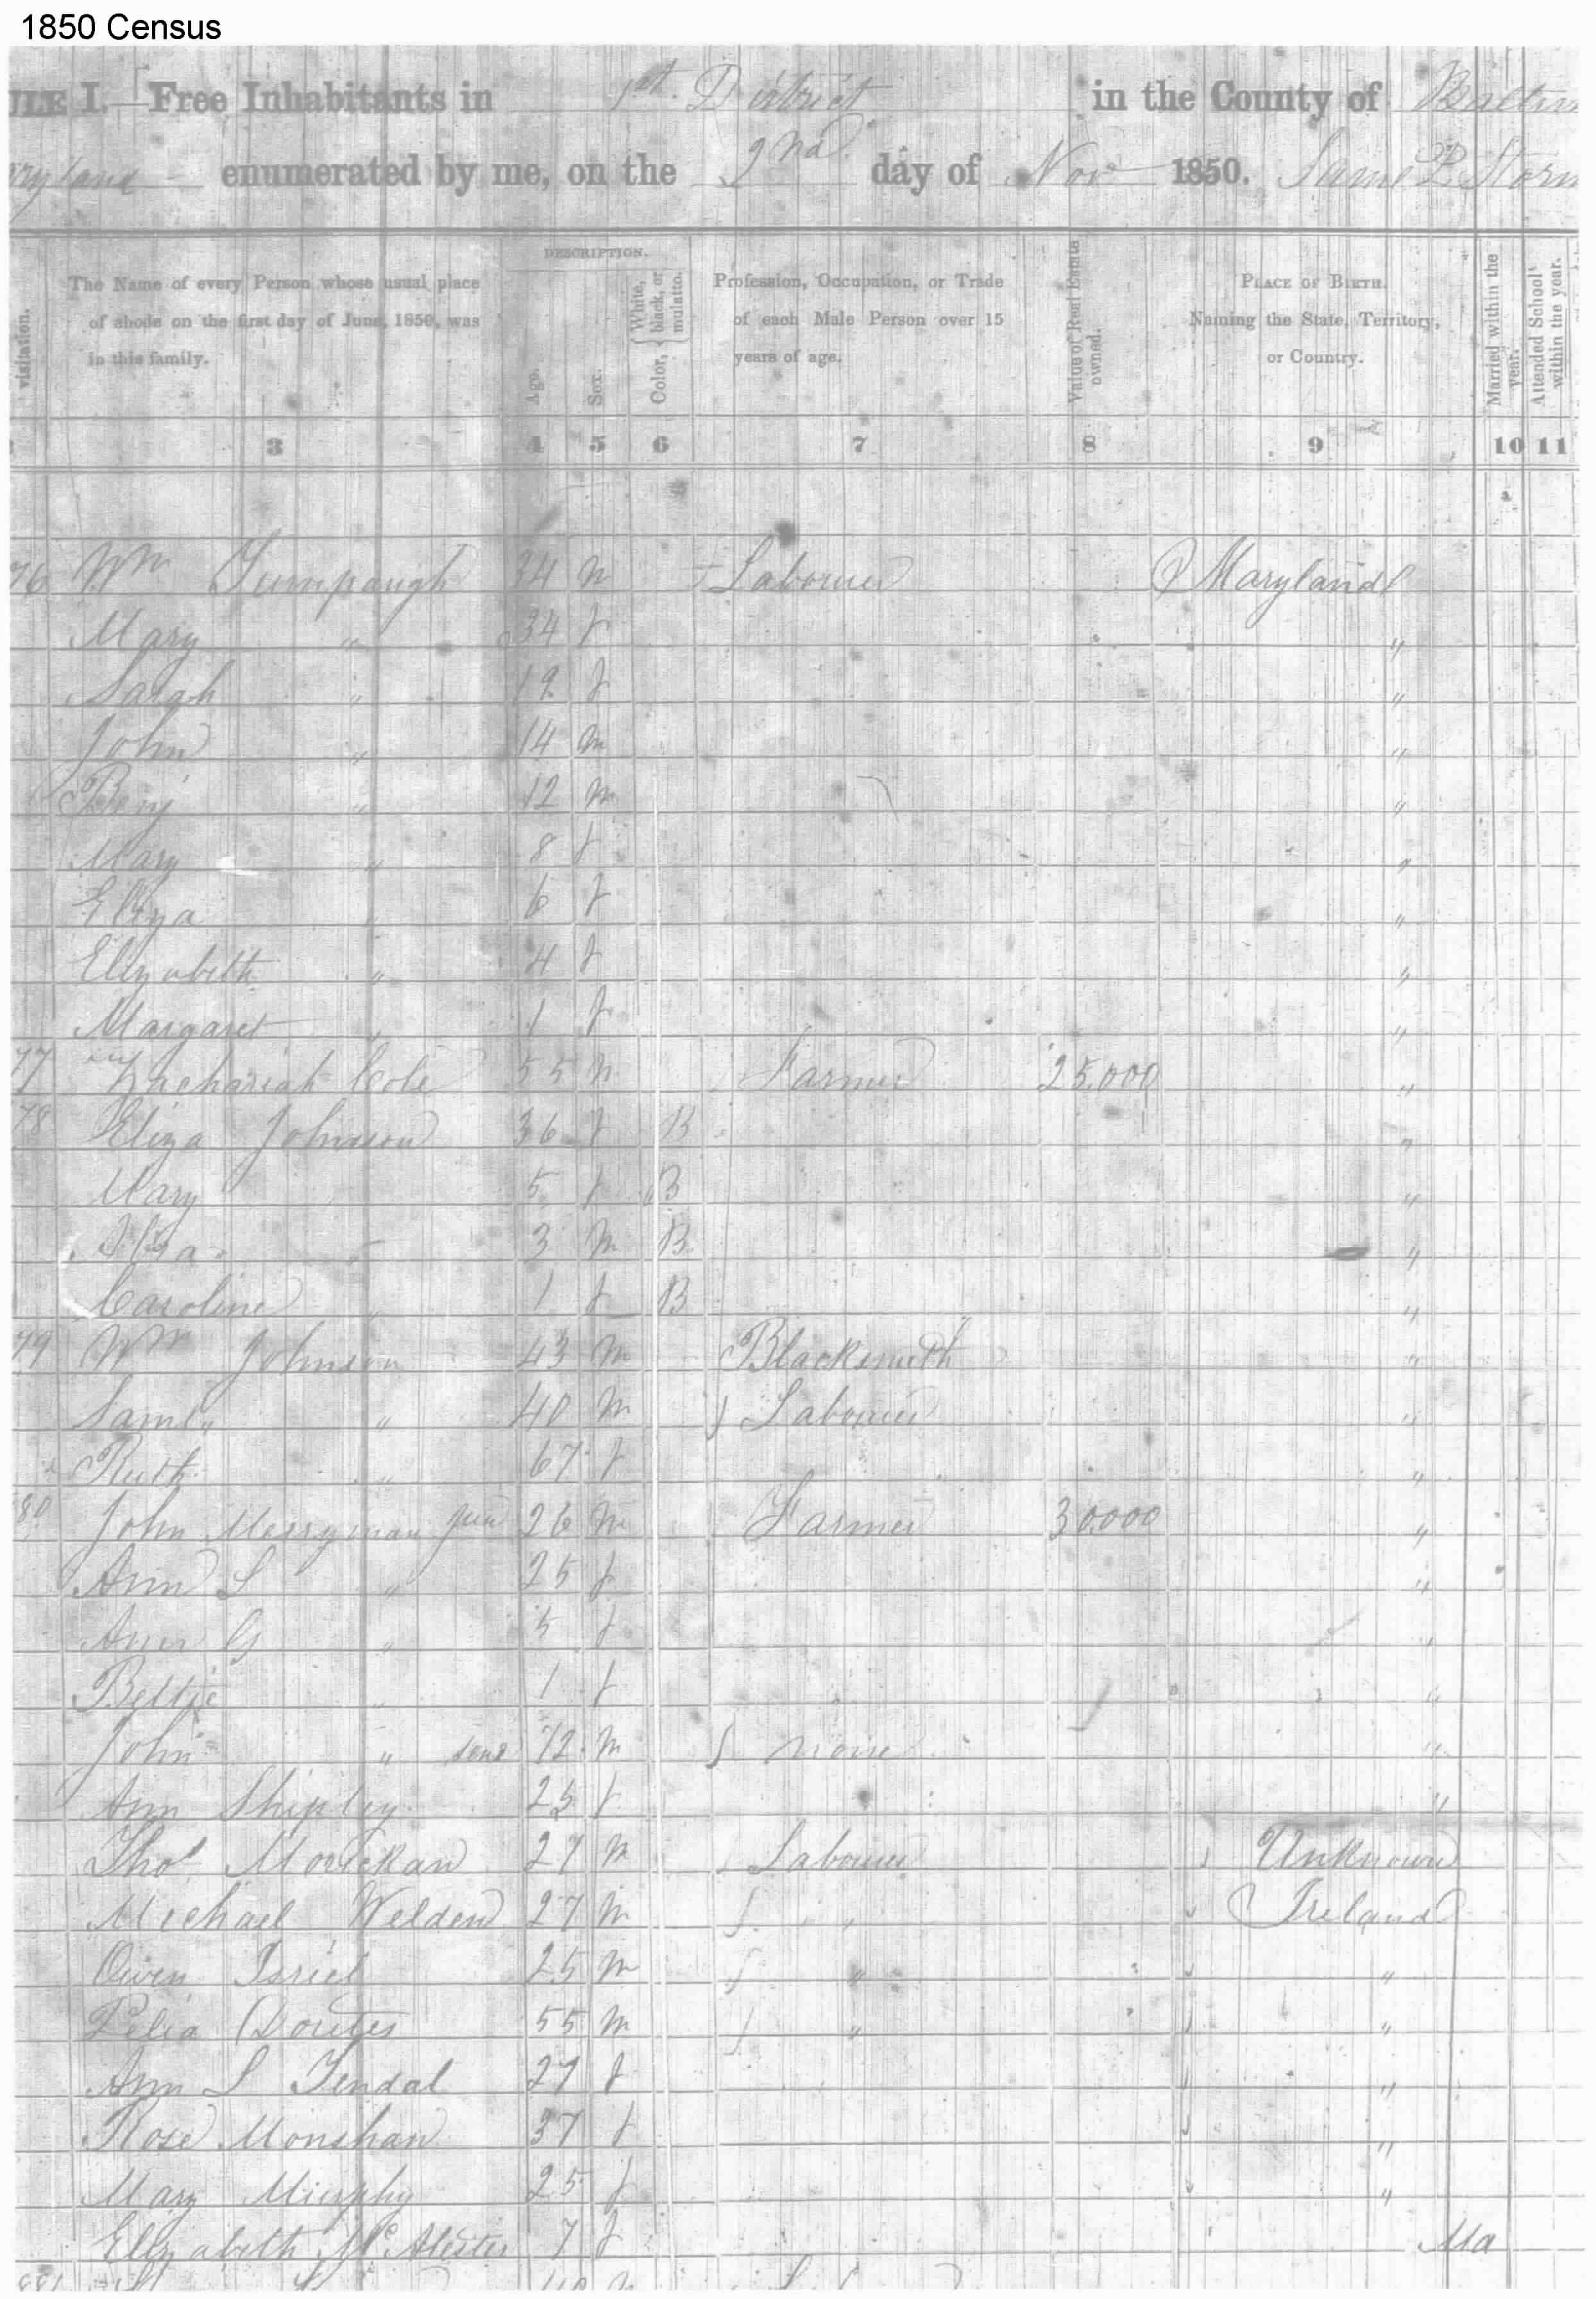 1850 Census
ULE I.—Free Inhabitants in 1st District in the County of Baltim
ryland enumerated by me, on the 2nd day of Nov 1850. Saml
visitation.
The Name of every Person whose usual place of abode on the first day of June, 1850, was in this family.
DESCRIPTION.
Age.
Sex.
Color, { White, black, or mulatto.
Profession, Occupation, or Trade of each Male Person over 15 years of age.
Value of Real Estate owned.
PLACE OF BIRTH. Naming the State, Territory, or Country.
Married within the year.
Attended School within the year.
3 4 5 6 7 8 9 10 11
76 Wm 34 m Labourer Maryland
Mary " 34 f "
Sarah " 19 f "
John " 14 m "
Benj " 12 m "
Mary " 8 f "
Eliza " 6 f "
Elizabeth " 4 f "
Margaret " 1 f "
77 Zachariah Cole 55 m Farmer 25,000 "
78 Eliza Johnson 36 f B "
Mary 5 f B "
" 3 m B "
Caroline " 1 f B "
79 Wm Johnson 43 m Blacksmith "
Saml " 40 m Labourer "
Ruth " 67 f "
80 John Merryman Jun 26 m Farmer 30000 "
Ann L " 25 f "
Ann G " 5 f "
Bettie " 1 f "
John " Senr 72 m none "
Ann Shipley 25 f "
Thos 27 m Labourer Unknown
Michael Welden 27 m " Ireland
Owen 25 m " "
55 m " "
Ann L Tendal 27 f "
Rose Monshan 37 f "
Mary Murphy 25 f "
Elizabeth 7 f Ma